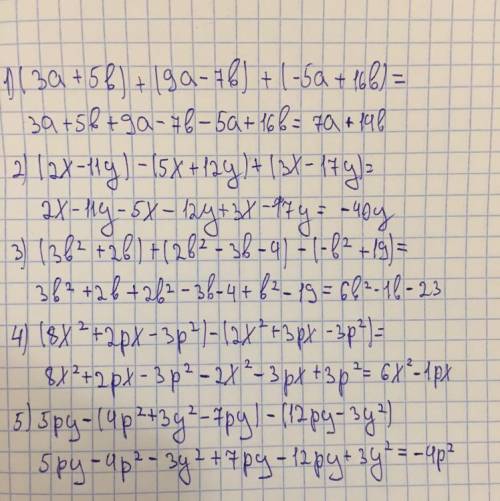 1) (3a + 5b) + (9a - 7b) + (-5a + 16b) =
3a + 5b + 9a - 7b - 5a + 16b = 7a + 14b
2) (2x - 11y) - (5x + 12y) + (3x - 17y) =
2x - 11y - 5x - 12y + 3x - 17y = -40y
3) (3b² + 2b) + (2b² - 3b - 4) - (-b² + 19) =
3b² + 2b + 2b² - 3b - 4 + b² - 19 = 6b² - 1b - 23
4) (8x² + 2px - 3p²) - (2x² + 3px - 3p²) =
8x² + 2px - 3p² - 2x² - 3px + 3p² = 6x² - 1px
5.) 5py - (4p² + 3y² - 7py) - (12py - 3y²)
5py - 4p² - 3y² + 7py - 12py + 3y² = -4p²